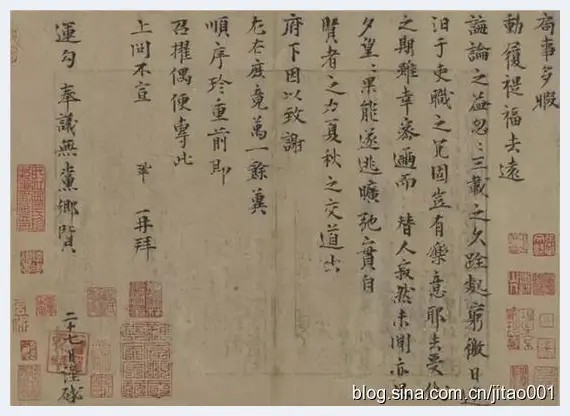 局事多暇
動履禔福去遠
誨論之益忽忽三載之久跧處窮徼日迷
汩于吏職之冗固豈有樂意耶去受代
之期雖幸密邇而替人寂然未聞亦旦
夕望望果能遂逃曠弛實自
賢者之力夏秋之交道出
府下因以致謝
左右庶竟萬一餘冀
順序珍重前即
召擢偶便專此
上問不宣 鞏再拜
運勾奉議無黨鄉賢
二十七日謹
blog.sina.com.cn/jitao001